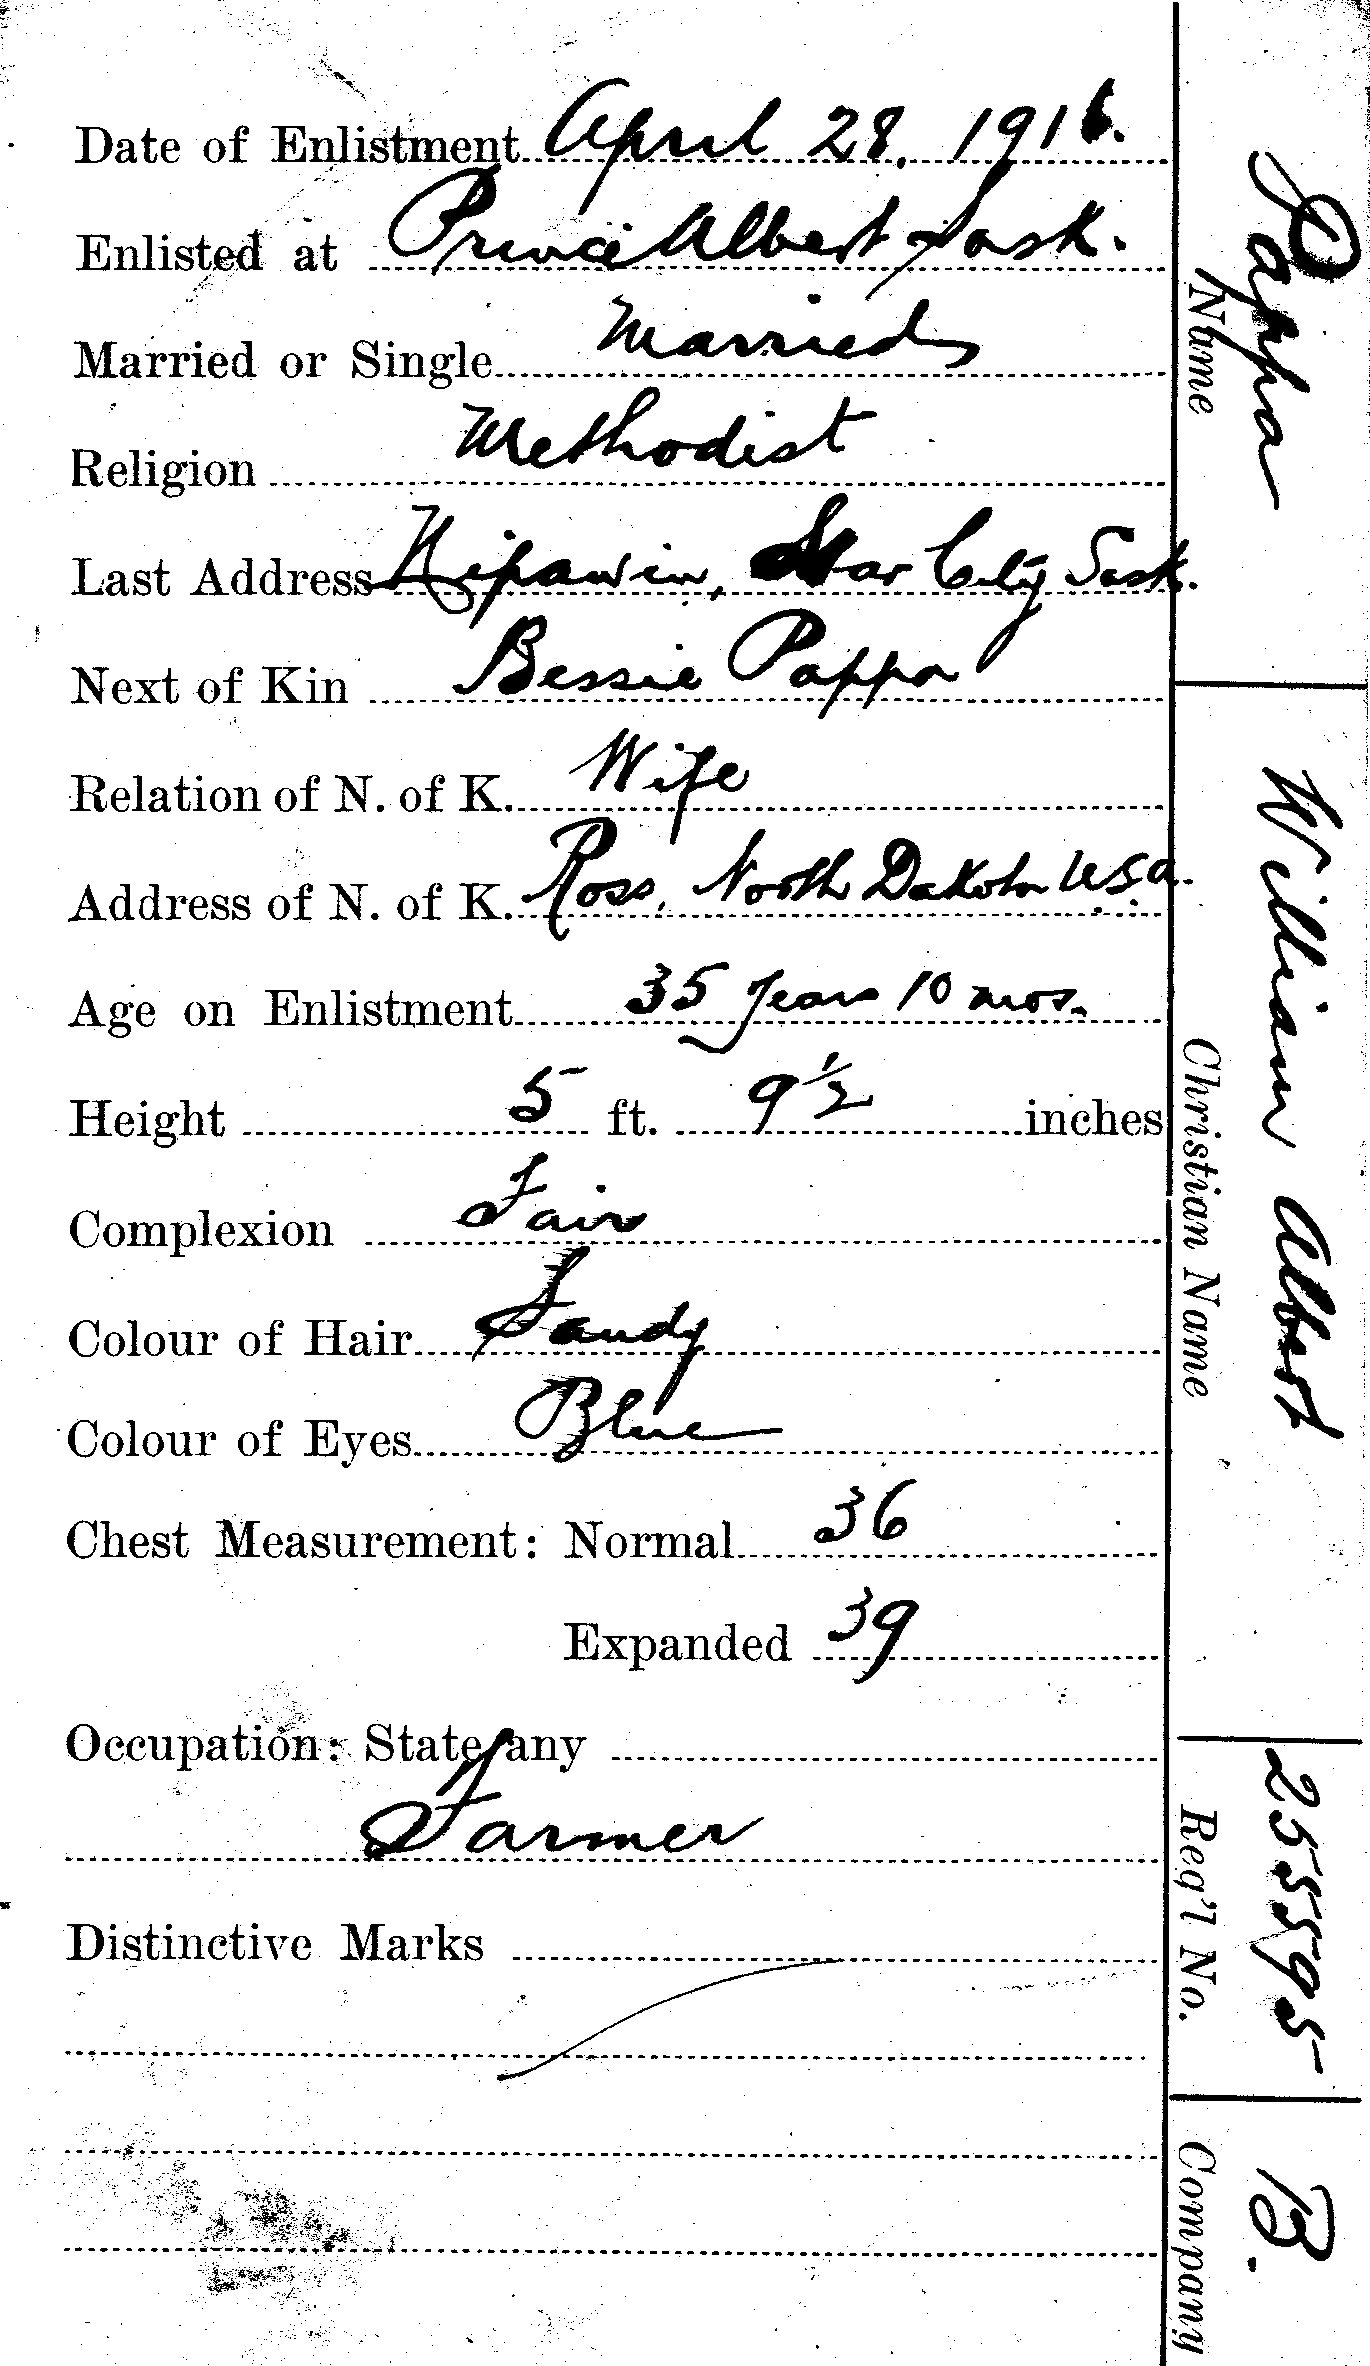 Date of Enlistment April 28, 1916.
Enlisted at Prince Albert Sask.
Married or Single Married
Religion Methodist
Last Address Nipawin, Star City Sask.
Next of Kin Bessie Pappa
Relation of N. of K. Wife
Address of N. of K. Ross, North Dakota U.S.A.
Age on Enlistment 35 years 10 mos.
Height 5 ft. 9 1/2 inches
Complexion Fair
Colour of Hair Sandy
Colour of Eyes Blue
Chest Measurement: Normal 36
Expanded 39
Occupation: State any
Farmer
Distinctive Marks
Name Pappa
Christian Name William Albert
Req'l No. 255595
Company B.